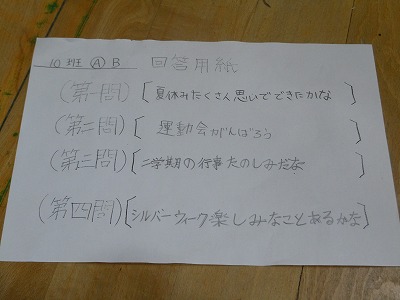 10班 Ⓐ B 回答用紙
(第一問)[夏休みたくさん思いでできたかな]
(第二問)[運動会がんばろう]
(第三問)[二学期の行事たのしみだな]
(第四問)[シルバーウィーク楽しみなことあるかな]